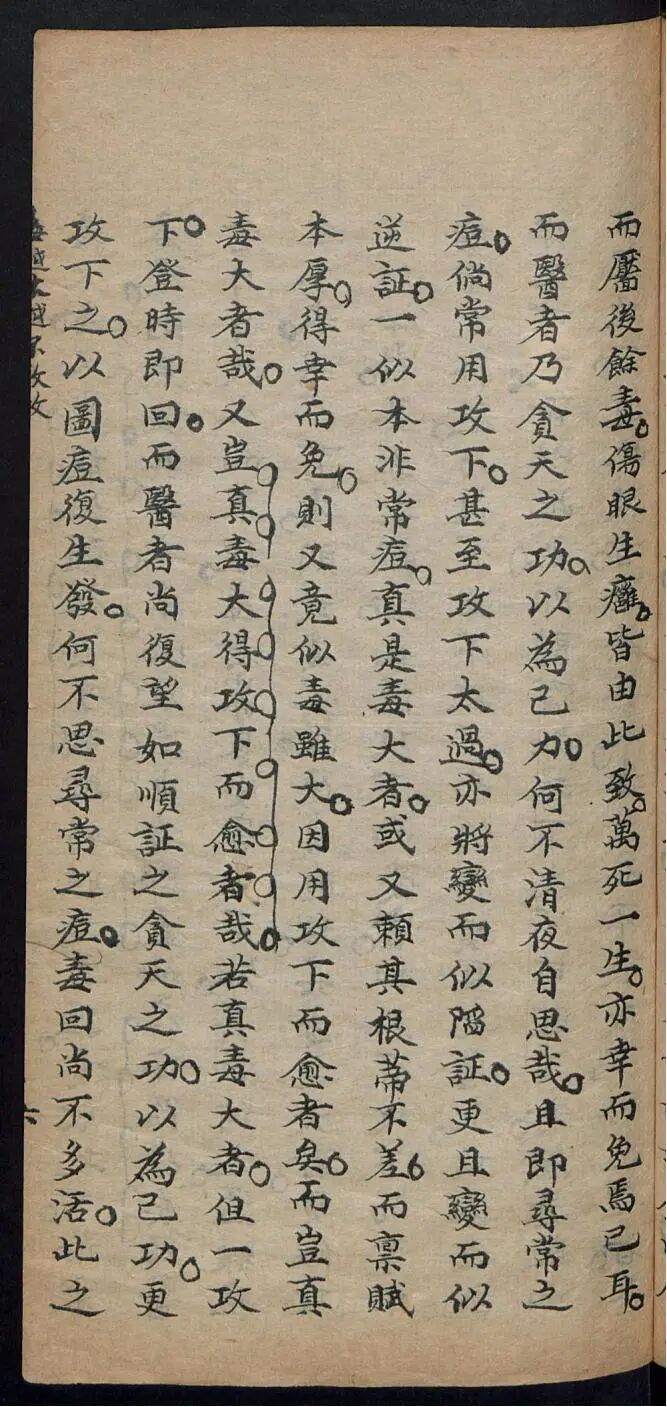 而靨後餘毒。傷眼生癰。皆由此致。萬死一生。亦幸而免焉已耳。
而醫者乃貪天之功。以為己力。何不清夜自思哉。且即尋常之
痘。倘常用攻下。甚至攻下太過。亦將變而似陷証。更且變而似
逆証。一似本非常痘。真是毒大者。或又賴其根蒂不差。而禀賦
本厚。得幸而免。則又竟似毒雖大。因用攻下而愈者矣。而豈真
毒大者哉。又豈真毒大得攻下而愈者哉。若真毒大者。但一攻
下。登時即回。而醫者尚復望如順証之貪天之功。以為己功。更
攻下之。以圖痘復生發。何不思尋常之痘。毒回尚不多活。此之
六